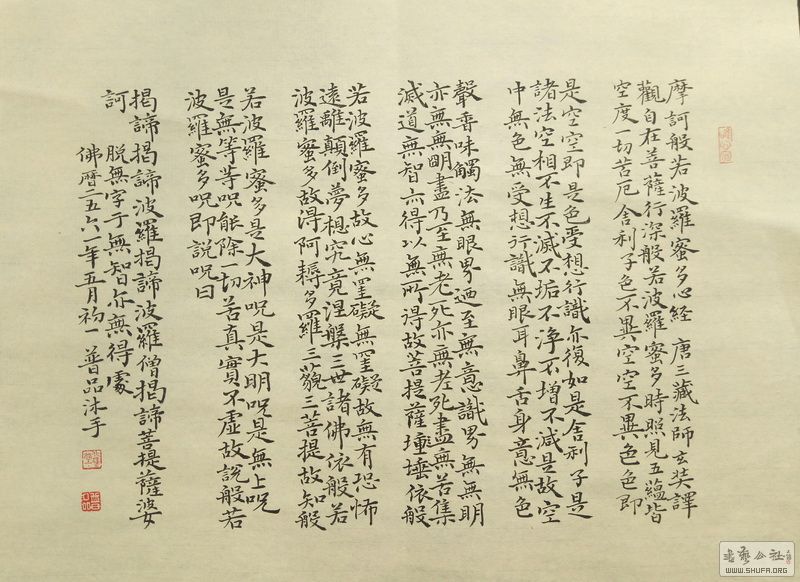 摩訶般若波羅蜜多心經 唐三藏法師玄奘譯
觀自在菩薩行深般若波羅蜜多時照見五蘊皆
空度一切苦厄舍利子色不異空空不異色色即
是空空即是色受想行識亦復如是舍利子是
諸法空相不生不滅不垢不淨不增不減是故空
中無色無受想行識無眼耳鼻舌身意無色
聲香味觸法無眼界迺至無意識界無無明
亦無無明盡乃至無老死亦無老死盡無苦集
滅道無智亦得以無所得故菩提薩埵埵依般
若波羅蜜多故心無罣礙無罣礙故無有恐怖
遠離顛倒夢想究竟涅槃三世諸佛依般若
波羅蜜多故得阿耨多羅三藐三菩提故知般
若波羅蜜多是大神呪是大明呪是無上呪
是無等等呪能除一切苦真實不虛故說般若
波羅蜜多呪即說呪曰
揭諦揭諦波羅揭諦波羅僧揭諦菩提薩婆
訶 脫無字于無智亦無得處
佛曆二五六一年五月初一普品沐手
書藝公社
WWW.SHUFA.ORG